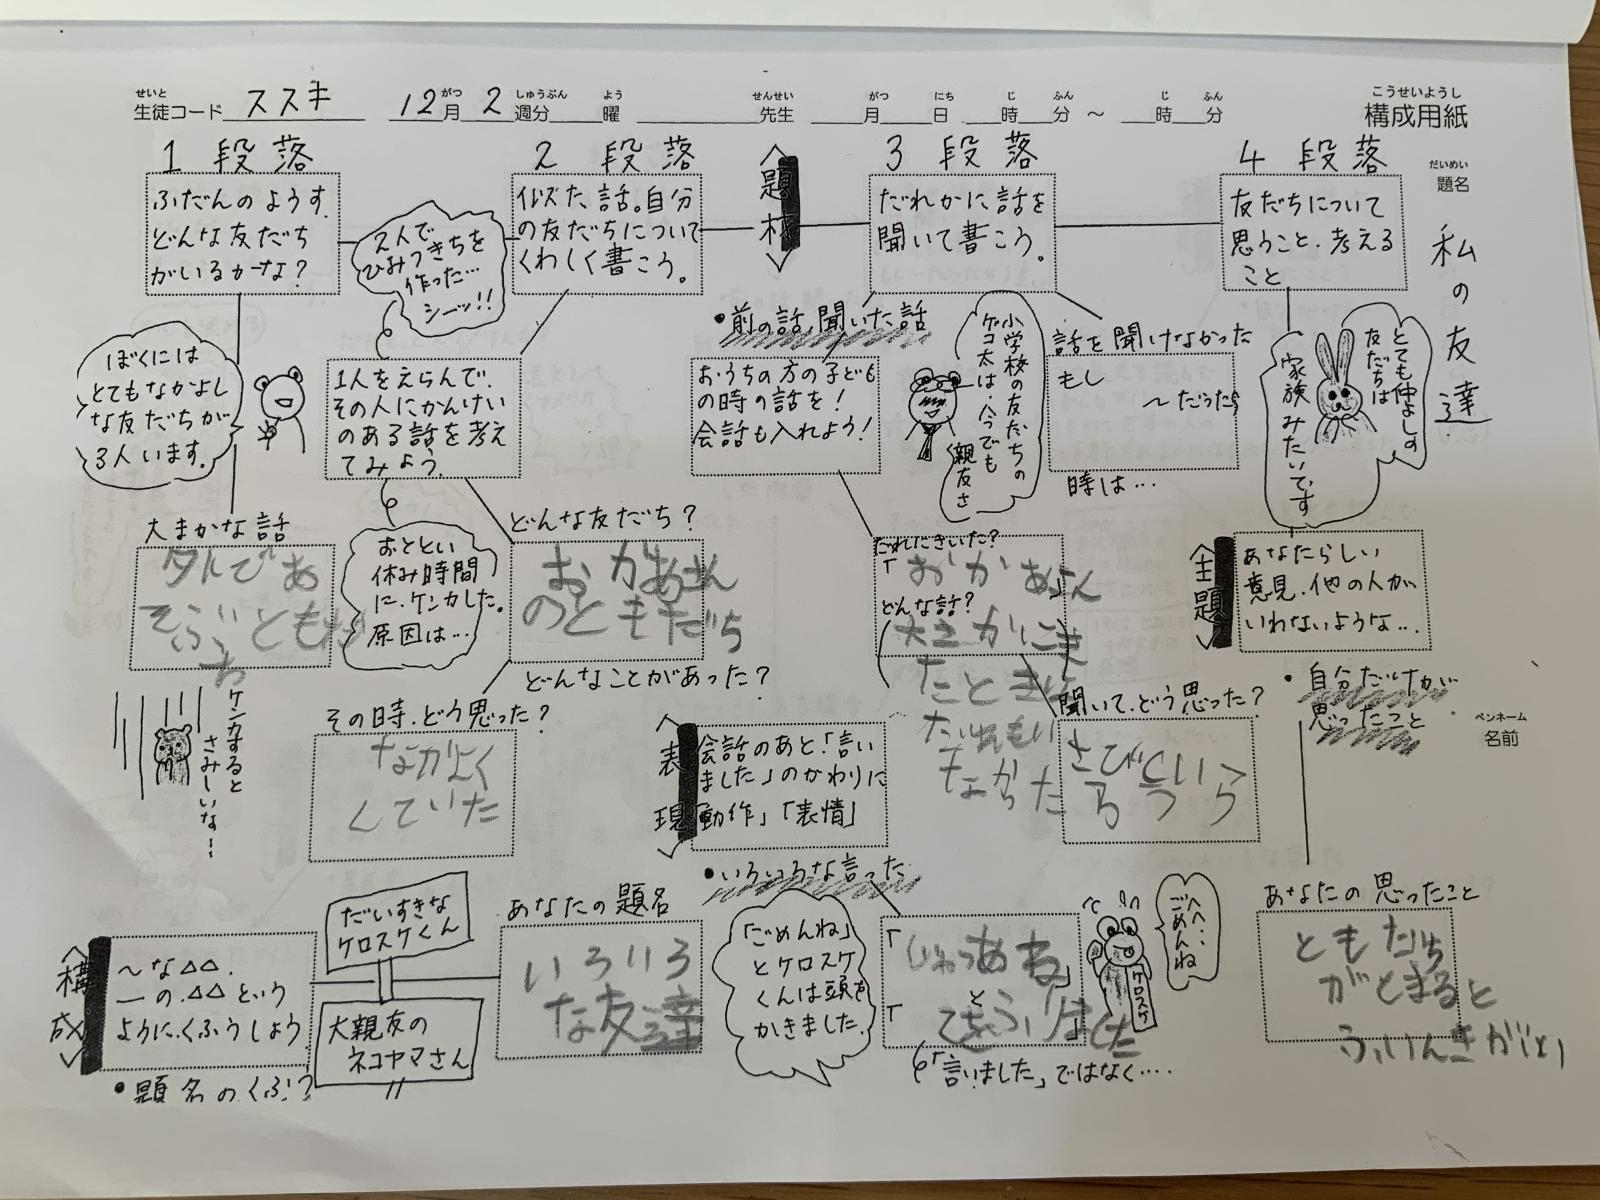 生徒コード ススキ 12月 2週分 曜 先生 月 日 時 分 ～ 時 分
せいと がつ しゅうぶん よう せんせい がつ にち じ ふん じ ふん
こうせいようし
構成用紙
だいめい
題名
私の友達
ペンネーム
名前
1 段落
ふだんのようす.
どんな友だち
がいるかな?
ぼくには
とてもなかよし
な友だちが
3人います.
大まかな話
外であ
そぶ
ケンカすると
さみしいな…
2 段落
似た話。自分
の友だちについて
くわしく書こう。
2人で
ひみつきちを
作った…
シーッ!!
1人をえらんで.
その人にかんけい
のある話を考え
てみよう.
おととい
休み時間
に.ケンカした。
原因は…
どんな友だち?
おかあさん
のともだち
どんなことがあった?
その時.どう思った?
なかよく
していた
<題材>
3 段落
だれかに話を
聞いて書こう。
・前の話,聞いた話
おうちの方の子ども
の時の話を!
会話も入れよう!
小学校の友だちの
ケコ太は.今でも
親友さ
話を聞けなかった
もし
～だったら
時は…
だれにきいた?
「おかあさん
どんな話?
たときに
なかった
聞いて.どう思った?
<表現>
会話のあと「言い
ました」のかわりに
「動作」「表情」
・いろいろな言った
「ごめんね」
とケロスケ
くんは頭を
かきました.
「
「
「言いました」ではなく….
へへ‥
ごめんね
ケロスケ
4 段落
友だちについて
思うこと.考える
こと
とても仲よしの
友だちは
家族みたいです
<主題>
あなたらしい
意見.他の人が
いわないような…
・自分だけが
思ったこと
あなたの思ったこと
ともだち
<構成>
～な△△.
―の.△△という
ように.くふうしよう.
・題名のくふう
だいすきな
ケロスケくん
大親友の
ネコヤマさん
あなたの題名
いろいろ
な友達